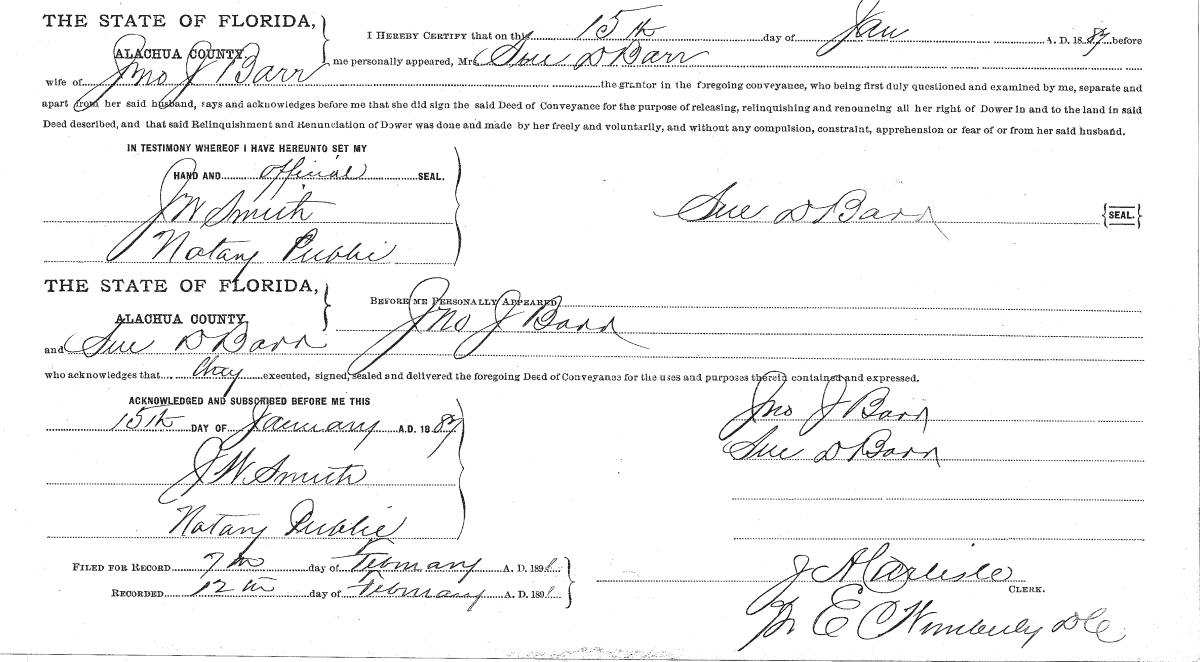 THE STATE OF FLORIDA,
ALACHUA COUNTY.
I HEREBY CERTIFY that on this 15th day of Jan A. D. 1887 before
me personally appeared, Mrs. Sue D Barr
wife of Jno J Barr the grantor in the foregoing conveyance, who being first duly questioned and examined by me, separate and
apart from her said husband, says and acknowledges before me that she did sign the said Deed of Conveyance for the purpose of releasing, relinquishing and renouncing all her right of Dower in and to the land in said
Deed described, and that said Relinquishment and Renunciation of Dower was done and made by her freely and voluntarily, and without any compulsion, constraint, apprehension or fear of or from her said husband.
IN TESTIMONY WHEREOF I HAVE HEREUNTO SET MY
HAND AND official SEAL.
J W Smith
Notary Public
Sue D Barr {SEAL.}
THE STATE OF FLORIDA,
ALACHUA COUNTY.
BEFORE ME PERSONALLY APPEARED
Jno J Barr
and Sue D Barr
who acknowledges that they executed, signed, sealed and delivered the foregoing Deed of Conveyance for the uses and purposes therein contained and expressed.
ACKNOWLEDGED AND SUBSCRIBED BEFORE ME THIS
15th DAY OF January A.D. 1887
J W Smith
Notary Public
Jno J Barr
Sue D Barr
FILED FOR RECORD 7th day of February A. D. 1891
RECORDED 12th day of February A. D. 1891
J A Carlisle
CLERK.
E C Wimberly D C